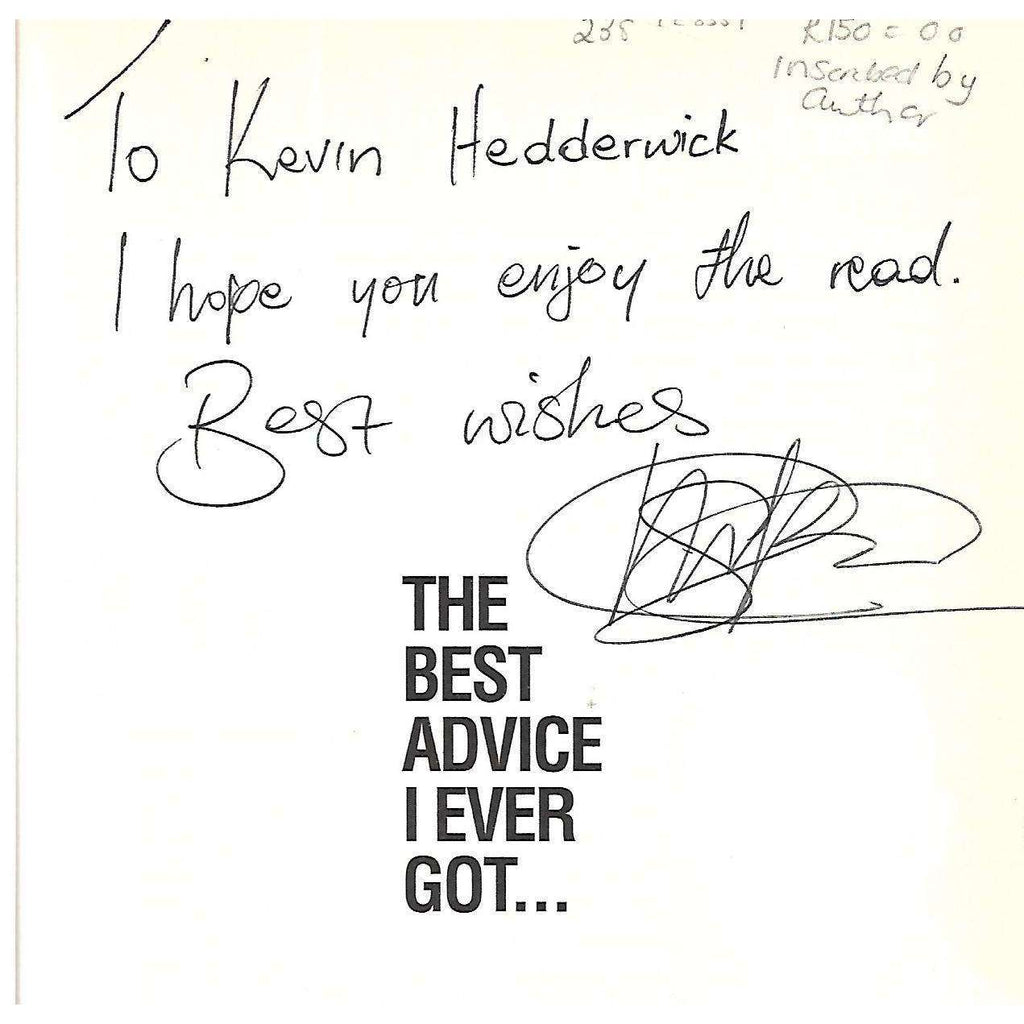 R150=00
Inscribed by
author
To Kevin Hedderwick
I hope you enjoy the read.
Best wishes
THE
BEST
ADVICE
I EVER
GOT...